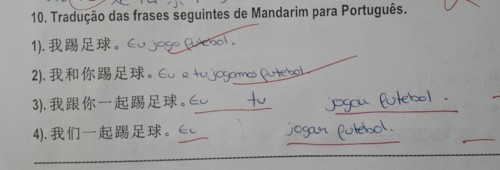 10. Tradução das frases seguintes de Mandarim para Português.
1). 我踢足球。Eu jogo futebol.
2). 我和你踢足球。Eu e tu jogamos futebol.
3). 我跟你一起踢足球。Eu tu jogar futebol.
4). 我们一起踢足球。Eu jogar futebol.